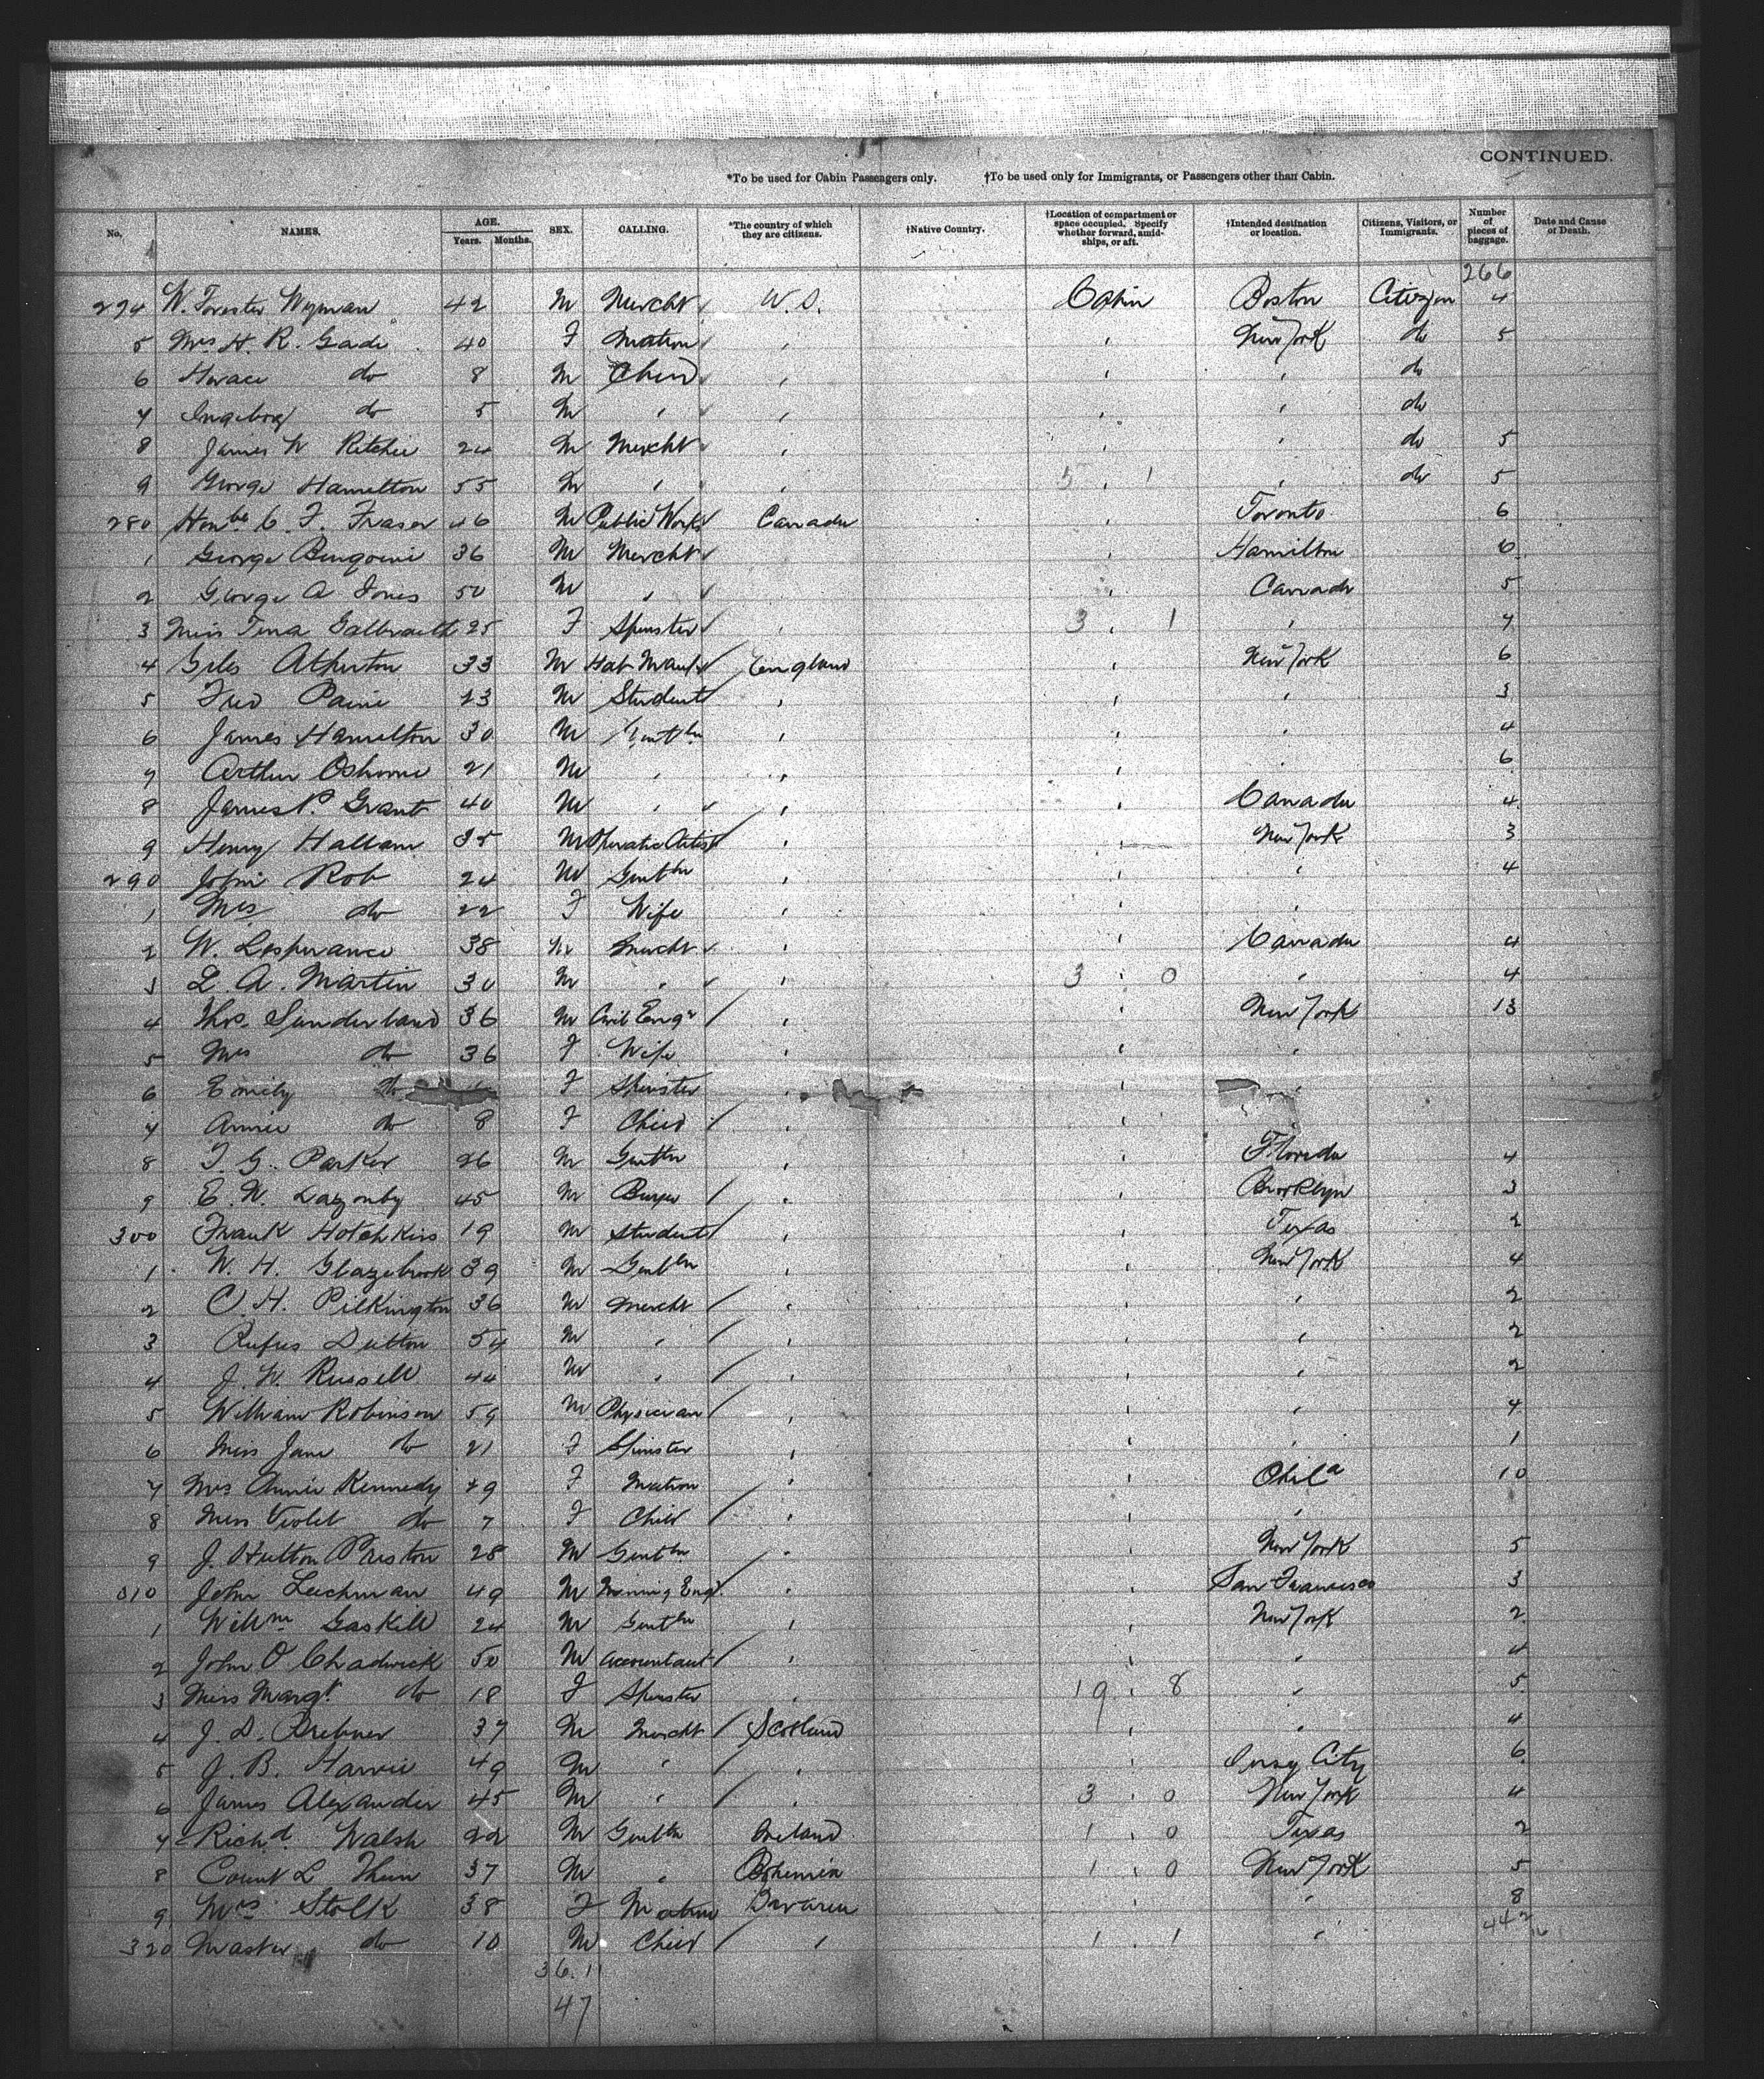 CONTINUED.
*To be used for Cabin Passengers only. †To be used only for Immigrants, or Passengers other than Cabin.
No. NAMES. AGE. Years. Months. SEX. CALLING. *The country of which they are citizens. †Native Country. †Location of compartment or space occupied. Specify whether forward, amidships, or aft. †Intended destination or location. Citizens, Visitors, or Immigrants. Number of pieces of baggage. Date and Cause of Death.
266
274 W. Forester Wyman 42 M Mercht U.S. Cabin Boston Citizen 4
5 Mrs H. R. Gade 40 F Matron " " New York do 5
6 Horace do 8 M Child " " " do
7 Ingeborg do 5 M " " " " do
8 James W Ritchie 24 M Mercht " " " do 5
9 George Hamilton 55 M " " 5 " 1 " do 5
280 Honble C. F. Fraser 46 M Public Works Canada " Toronto 6
1 George 36 M Mercht " Hamilton 6
2 George A Jones 50 M " " Canada 5
3 Miss Tena Galbraith 25 F Spinster " 3 " 1 " 7
4 Giles Atherton 33 M Hat Manufr England New York 6
5 Fred Paine 23 M Student " " " 3
6 James Hamilton 30 M Gentln " " " 4
7 Arthur Osborne 21 M " " " " 6
8 James P. Grant 40 M " " " Canada 4
9 Henry Hallam 35 M Operatic Artist " " New York 3
290 John Rob 24 M Gentln " " " 4
1 Mrs do 22 F Wife " " "
2 W. Lesperance 38 M Mercht " " Canada 4
3 L. A. Martin 30 M " " 3 " 0 " 4
4 Thos. Sunderland 36 M Civil Engr " " New York 13
5 Mrs do 36 F Wife " " "
6 Emily do F Spinster " "
7 Annie do 8 F Child " "
8 T. G. Parker 26 M Gentln " " Florida 4
9 E. W. Lazonby 45 M Buyer " " Brooklyn 3
300 Frank Hotchkiss 19 M Student " " Texas 2
1 W. H. Glazebrook 39 M Gentln " " New York 4
2 C. H. Pilkington 36 M Mercht " " " 2
3 Rufus Dutton 54 M " " " " 2
4 J. W. Russell 44 M " " " " 2
5 William Robinson 59 M Physician " " " 4
6 Miss Jane do 21 F Spinster " " " 1
7 Mrs Annie Kennedy 49 F Matron " " Phila 10
8 Miss Violet do 7 F Child " " "
9 J. Hutton Preston 28 M Gentln " " New York 5
310 John Leechman 49 M Mining Engr " " San Francisco 3
1 Willm Gaskell 24 M Gentln " " New York 2
2 John O Chadwick 50 M Accountant " " " 4
3 Miss Margt do 18 F Spinster " 19 " 8 " 5
4 J. D. Brebner 37 M Mercht Scotland " " 4
5 J. B. Harvie 49 M " " " Jersey City 6
6 James Alexander 45 M " " 3 " 0 New York 4
7 Richd Walsh 22 M Gentln Ireland 1 " 0 Texas 2
8 Count L Thun 37 M " Bohemia 1 " 0 New York 5
9 Mrs Stolk 38 F Matron Bavaria " " 8
320 Master do 10 M Child " 1 " 1 "
442
36.11
47